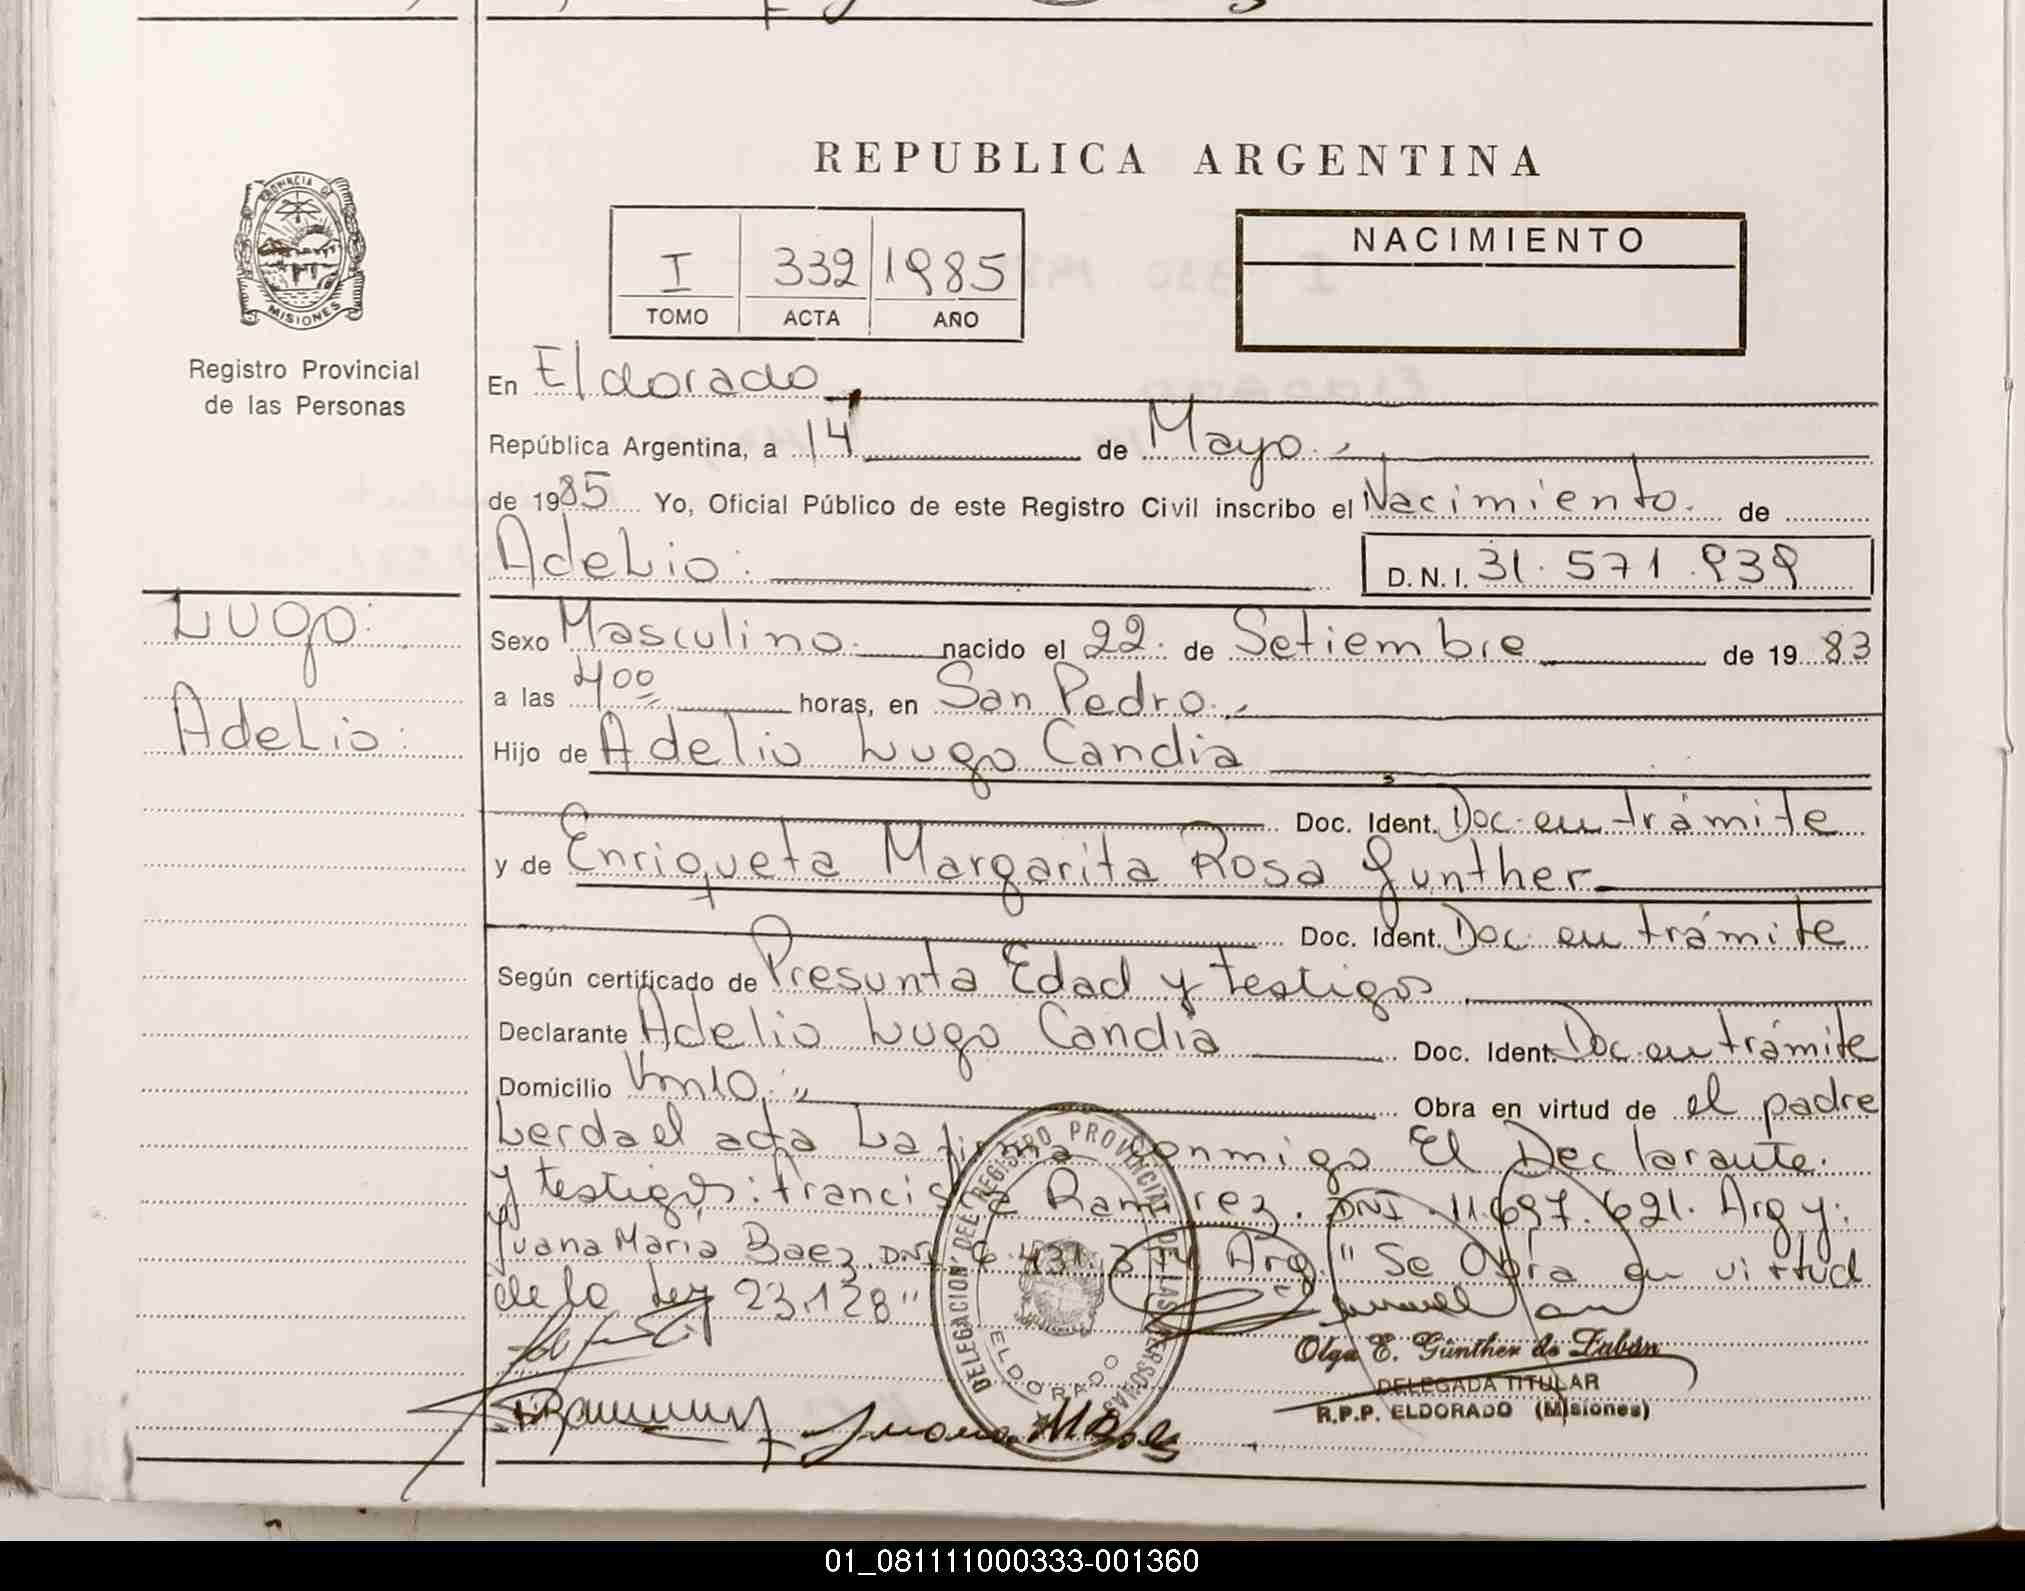 REPUBLICA ARGENTINA
PROVINCIA DE
MISIONES
Registro Provincial
de las Personas
I 332 1985
TOMO ACTA AÑO
NACIMIENTO
En Eldorado
República Argentina, a 14 de Mayo.
de 1985 Yo, Oficial Público de este Registro Civil inscribo el Nacimiento. de
Adelio: D.N.I. 31.571.939
Lugo:
Adelio:
Sexo Masculino. nacido el 22. de Setiembre de 19 83
a las 400 horas, en San Pedro.
Hijo de Adelio Lugo Candia
Doc. Ident. Doc. en trámite
y de Enriqueta Margarita Rosa Gunther
Doc. Ident. Doc. en trámite
Según certificado de Presunta Edad y testigos
Declarante Adelio Lugo Candia Doc. Ident. Doc. en trámite
Domicilio Km10. Obra en virtud de el padre
Lerda el acta La firma conmigo El Declarante.
y testigos: Francisca Ramirez. DNI. 11.697.621. Arg y:
Juana Maria Baez. DNI. 6.431.374 Arg. "Se Obra en virtud
de la Ley 23.128"
DELEGACION DEL REGISTRO PROVINCIAL DE LAS PERSONAS
ELDORADO
Olga E. Günther de Zubán
DELEGADA TITULAR
R.P.P. ELDORADO (Misiones)
01_081111000333-001360